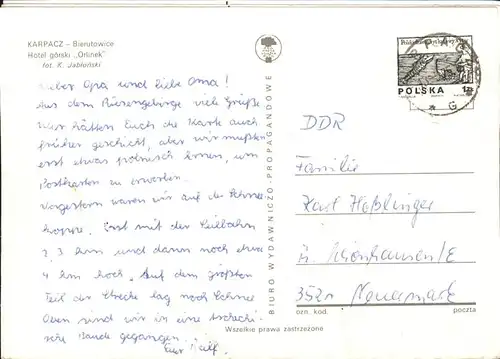 KARPACZ – Bierutowice
Hotel górski „Orlinek"
fot. K. Jabłoński
Lieber Opa und liebe Oma!
Aus dem Riesengebirge viele Grüße
Wir hätten Euch die Karte auch
früher geschickt, aber wir mußten
erst etwas polnisch lernen, um
Postkarten zu erwerben.
Vorgestern waren wir auf der Schnee-
koppe. Erst mit der Seilbahn
2,3 km und dann noch etwa
4 km hoch. Auf dem größten
Teil der Strecke lag noch Schnee
Oben sind wir in eine tschechi-
sche Baude gegangen.
Euer Ralf.
BIURO WYDAWNICZO-PROPAGANDOWE
POLSKA
DDR
Familie
Karl Heßlinger
Schönhausen/E
3521
ozn. kod.
poczta
Wszelkie prawa zastrzeżone